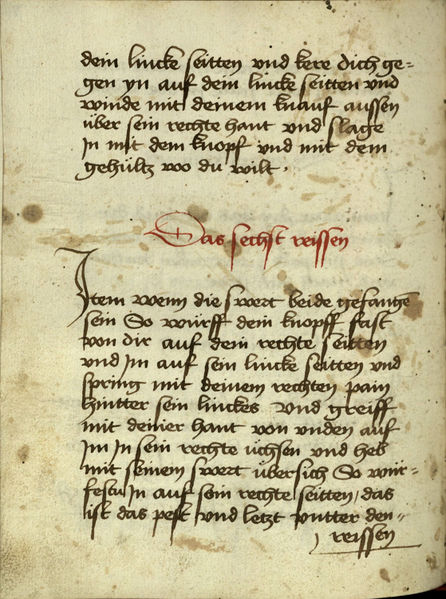 dein lincke seitten vnd kere dich ge=
gen yn auf dein lincke seitten vnd
winde mit deinem knauf aussen
über sein rechte hant vnd slage
In mit dem knopf vnd mit dem
gehültz wo du wilt ·
Das sechst reissen
Item wenn die swert beide gefangē
sein So würff dein knopff fast
von dir auf dein rechte seitten
vnd Im auf sein lincke seitten vnd
spring mit deinem rechten pain
hintter sein linckes Vnd greiff
mit deiner hant von vnden auf
Im In sein rechte üchsen vnd heb
mit seinem swert übersich So wür=
festu In auf sein rechte seitten / das
ist das pest vnd letzt vntter den=
reissen